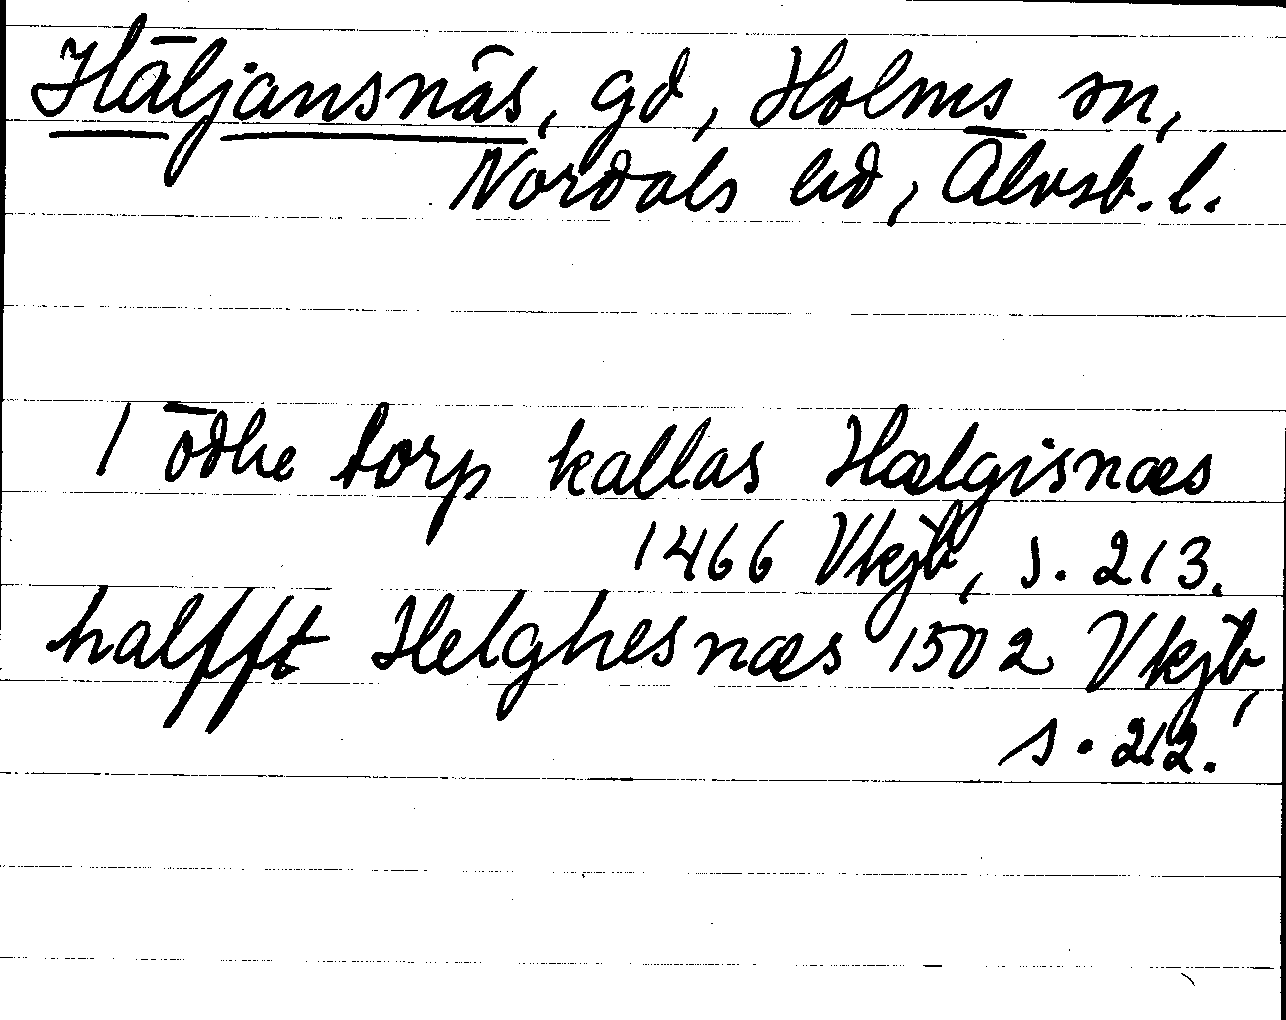 Häljansnäs, gd, Holms sn,
Nordals hd, Älvsb. l.
1 ödhe torp kallas Hælgisnæs
1466 Vkjb, s. 213.
halfft Helghesnæs 1502 Vkjb,
s. 212.